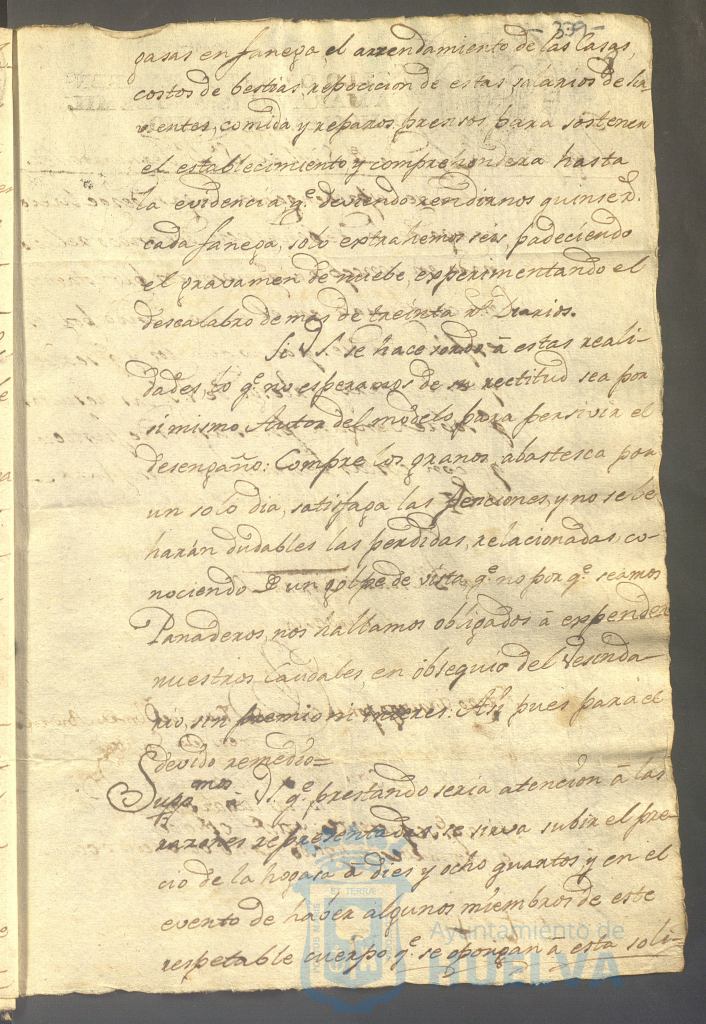 - 339 -
gasas en fanega, el arrendamiento de las Casas,
costos de bestias, reposicion de estas, salarios de sir
vientes, comida y reparos presisos para sostener
el establecimiento y comprehenderá hasta
la evidencia q.e deviendo rendirnos quinse r.s
cada fanega, solo extrahemos seis, padeciendo
el gravamen de nuebe, experimentando el
descalabro de mas de treinta r.s Diarios.
Si V.S. se hace sordo â estas reali-
dades, lo q.e no esperamos de su rectitud sea por
si mismo Autor del modelo, para persivir el
desengaño: Compre los granos, abastesca por
un solo dia, satisfaga las Penciones, y no se le
harán dudables las perdidas relacionadas, co-
nociendo de un golpe de vista, q.e no por q.e seamos
Panaderos, nos hallamos obligados â expender
nuestros Caudales, en obsequio del Vesinda-
rio, sin premio ni interes: Asi pues para el
devido remedio=
Sup.mos â V.S. q.e prestando seria atencion â las
razones representadas, se sirva subir el pre-
cio de la hogasa â dies y ocho quartos; y en el
evento de haber algunos miembros de este
respetable cuerpo, q.e se opongan â esta soli-
Ayuntamiento de
HUELVA